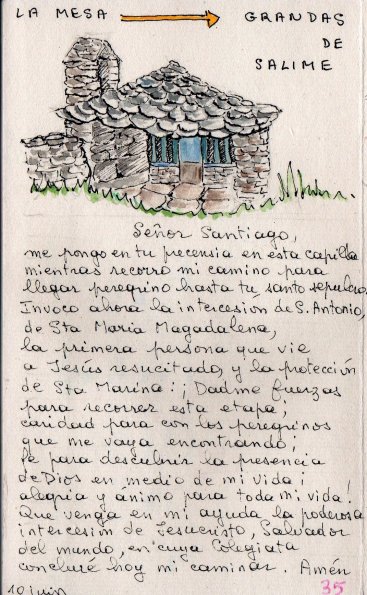 LA MESA → GRANDAS
DE
SALIME
Señor Santiago,
me pongo en tu pecensia en esta capilla
mientras recorro mi camino para
llegar peregrino hasta tu santo sepulcro.
Invoco ahora la intercesión de S. Antonio,
de Sta María Magadalena,
la primera persona que vie
a Jesús resucitado, y la protección
de Sta Marina: ¡Dadme fuerzas
para recorrer esta etapa;
caridad para con los peregrinos
que me vaya encontrando;
fe para descubrir la presencia
de Dios en medio de mi vida;
alegría y ánimo para toda mi vida!
Que venga en mi ayuda la poderosa
intercesión de Jesucristo, Salvador
del mundo, en cuya Colegiata
concluré hoy mi caminar. Amén
10 juin 35